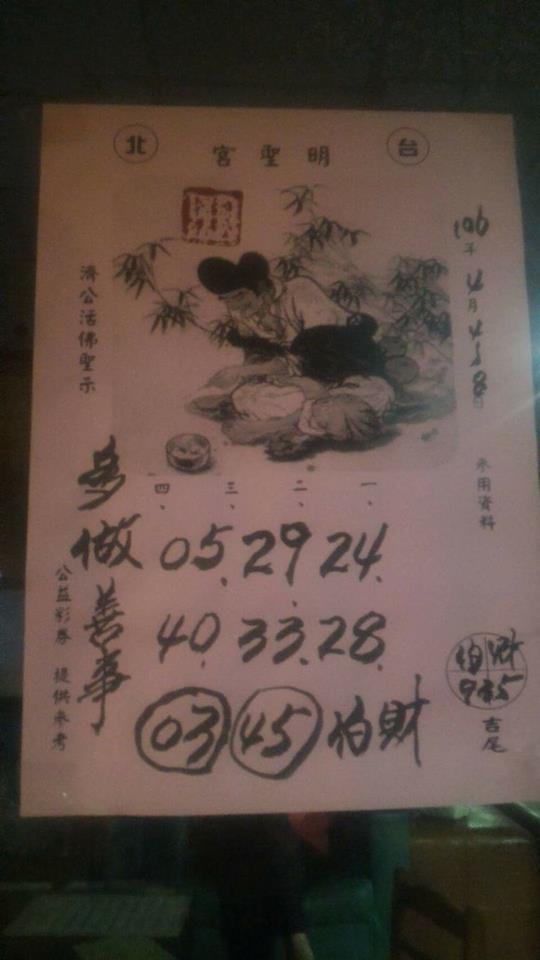 台 明聖宮 北
106年4月4.5.8日
參用資料
一、二、三、四、
05.29.24.
40.33.28.
03 45 財
吉尾
濟公活佛聖示
多做善事
公益彩券 提供參考